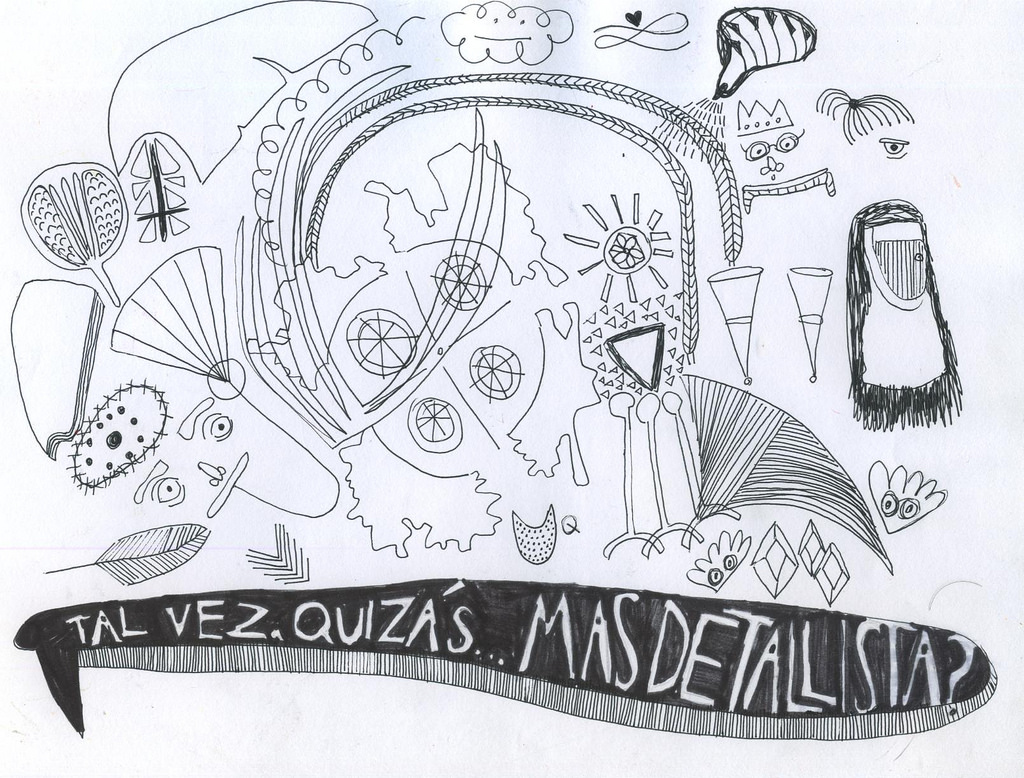 TAL VEZ. QUIZÁS... MAS DETALLISTA?